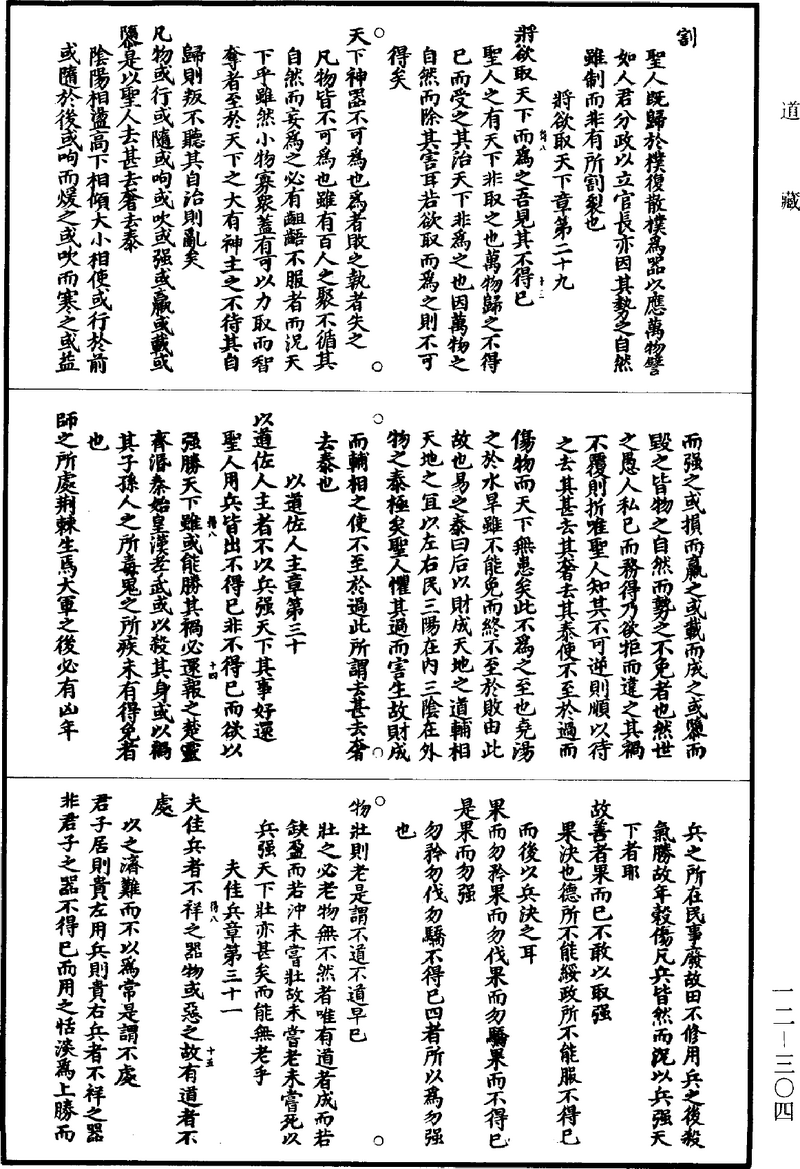 道藏
割
聖人既歸於樸復散樸為器以應萬物譬
如人君分政以立官長亦因其勢之自然
雖制而非有所割裂也
將欲取天下章第二十九
將欲取天下而為之吾見其不得已
聖人之有天下非取之也萬物歸之不得
已而受之其治天下非為之也因萬物之
自然而除其害耳若欲取而為之則不可
得矣
天下神器不可為也為者敗之執者失之
凡物皆不可為也雖有百人之聚不循其
自然而妄為之必有齟齬不服者而況天
下乎雖然小物寡眾蓋有可以力取而智
奪者至於天下之大有神主之不待其自
歸則叛不聽其自治則亂矣
凡物或行或隨或呴或吹或强或羸或載或
隳是以聖人去甚去奢去泰
陰陽相盪高下相傾大小相使或行於前
或隨於後或呴而煖之或吹而寒之或益
而强之或損而羸之或載而成之或隳而
毀之皆物之自然而勢之不免者也然世
之愚人私已而務得乃欲拒而違之其禍
不覆則折唯聖人知其不可逆則順以待
之去其甚去其奢去其泰使不至於過而
傷物而天下無患矣此不為之至也堯湯
之於水旱雖不能免而終不至於敗由此
故也易之泰曰后以財成天地之道輔相
天地之宜以左右民三陽在內三陰在外
物之泰極矣聖人懼其過而害生故財成
而輔相之使不至於過此所謂去甚去奢
去泰也
以道佐人主章第三十
以道佐人主者不以兵强天下其事好還
聖人用兵皆出不得已非不得已而欲以
强勝天下雖或能勝其禍必還報之楚靈
齊湣秦始皇漢孝武或以殺其身或以禍
其子孫人之所毒鬼之所疾未有得免者
也
師之所處荆棘生焉大軍之後必有凶年
兵之所在民事廢故田不修用兵之後殺
氣勝故年穀傷凡兵皆然而況以兵强天
下者耶
故善者果而已不敢以取强
果決也德所不能綏政所不能服不得已
而後以兵決之耳
果而勿矜果而勿伐果而勿驕果而不得已
是果而勿强
勿矜勿伐勿驕不得已四者所以為勿强
也
物壯則老是謂不道不道早已
壯之必老物無不然者唯有道者成而若
缺盈而若沖未嘗壯故未嘗老未嘗死以
兵强天下壯亦甚矣而能無老乎
夫佳兵章第三十一
夫佳兵者不祥之器物或惡之故有道者不
處
以之濟難而不以為常是謂不處
君子居則貴左用兵則貴右兵者不祥之器
非君子之器不得已而用之恬淡為上勝而
一二—三〇四